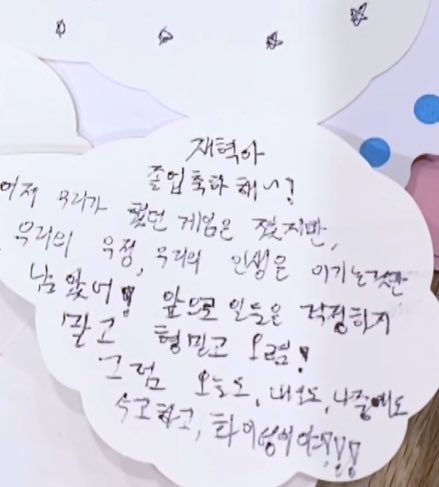 재혁아
졸업축하해~!
어제 우리가 했던 게임은 졌지만,
우리의 우정, 우리의 인생은 이기는것만
남았어! 앞으로 일들은 걱정하지
말고 형믿고 오렴!
그럼 오늘도, 내일도, 나중에도
수고하고, 화이팅이야!!!